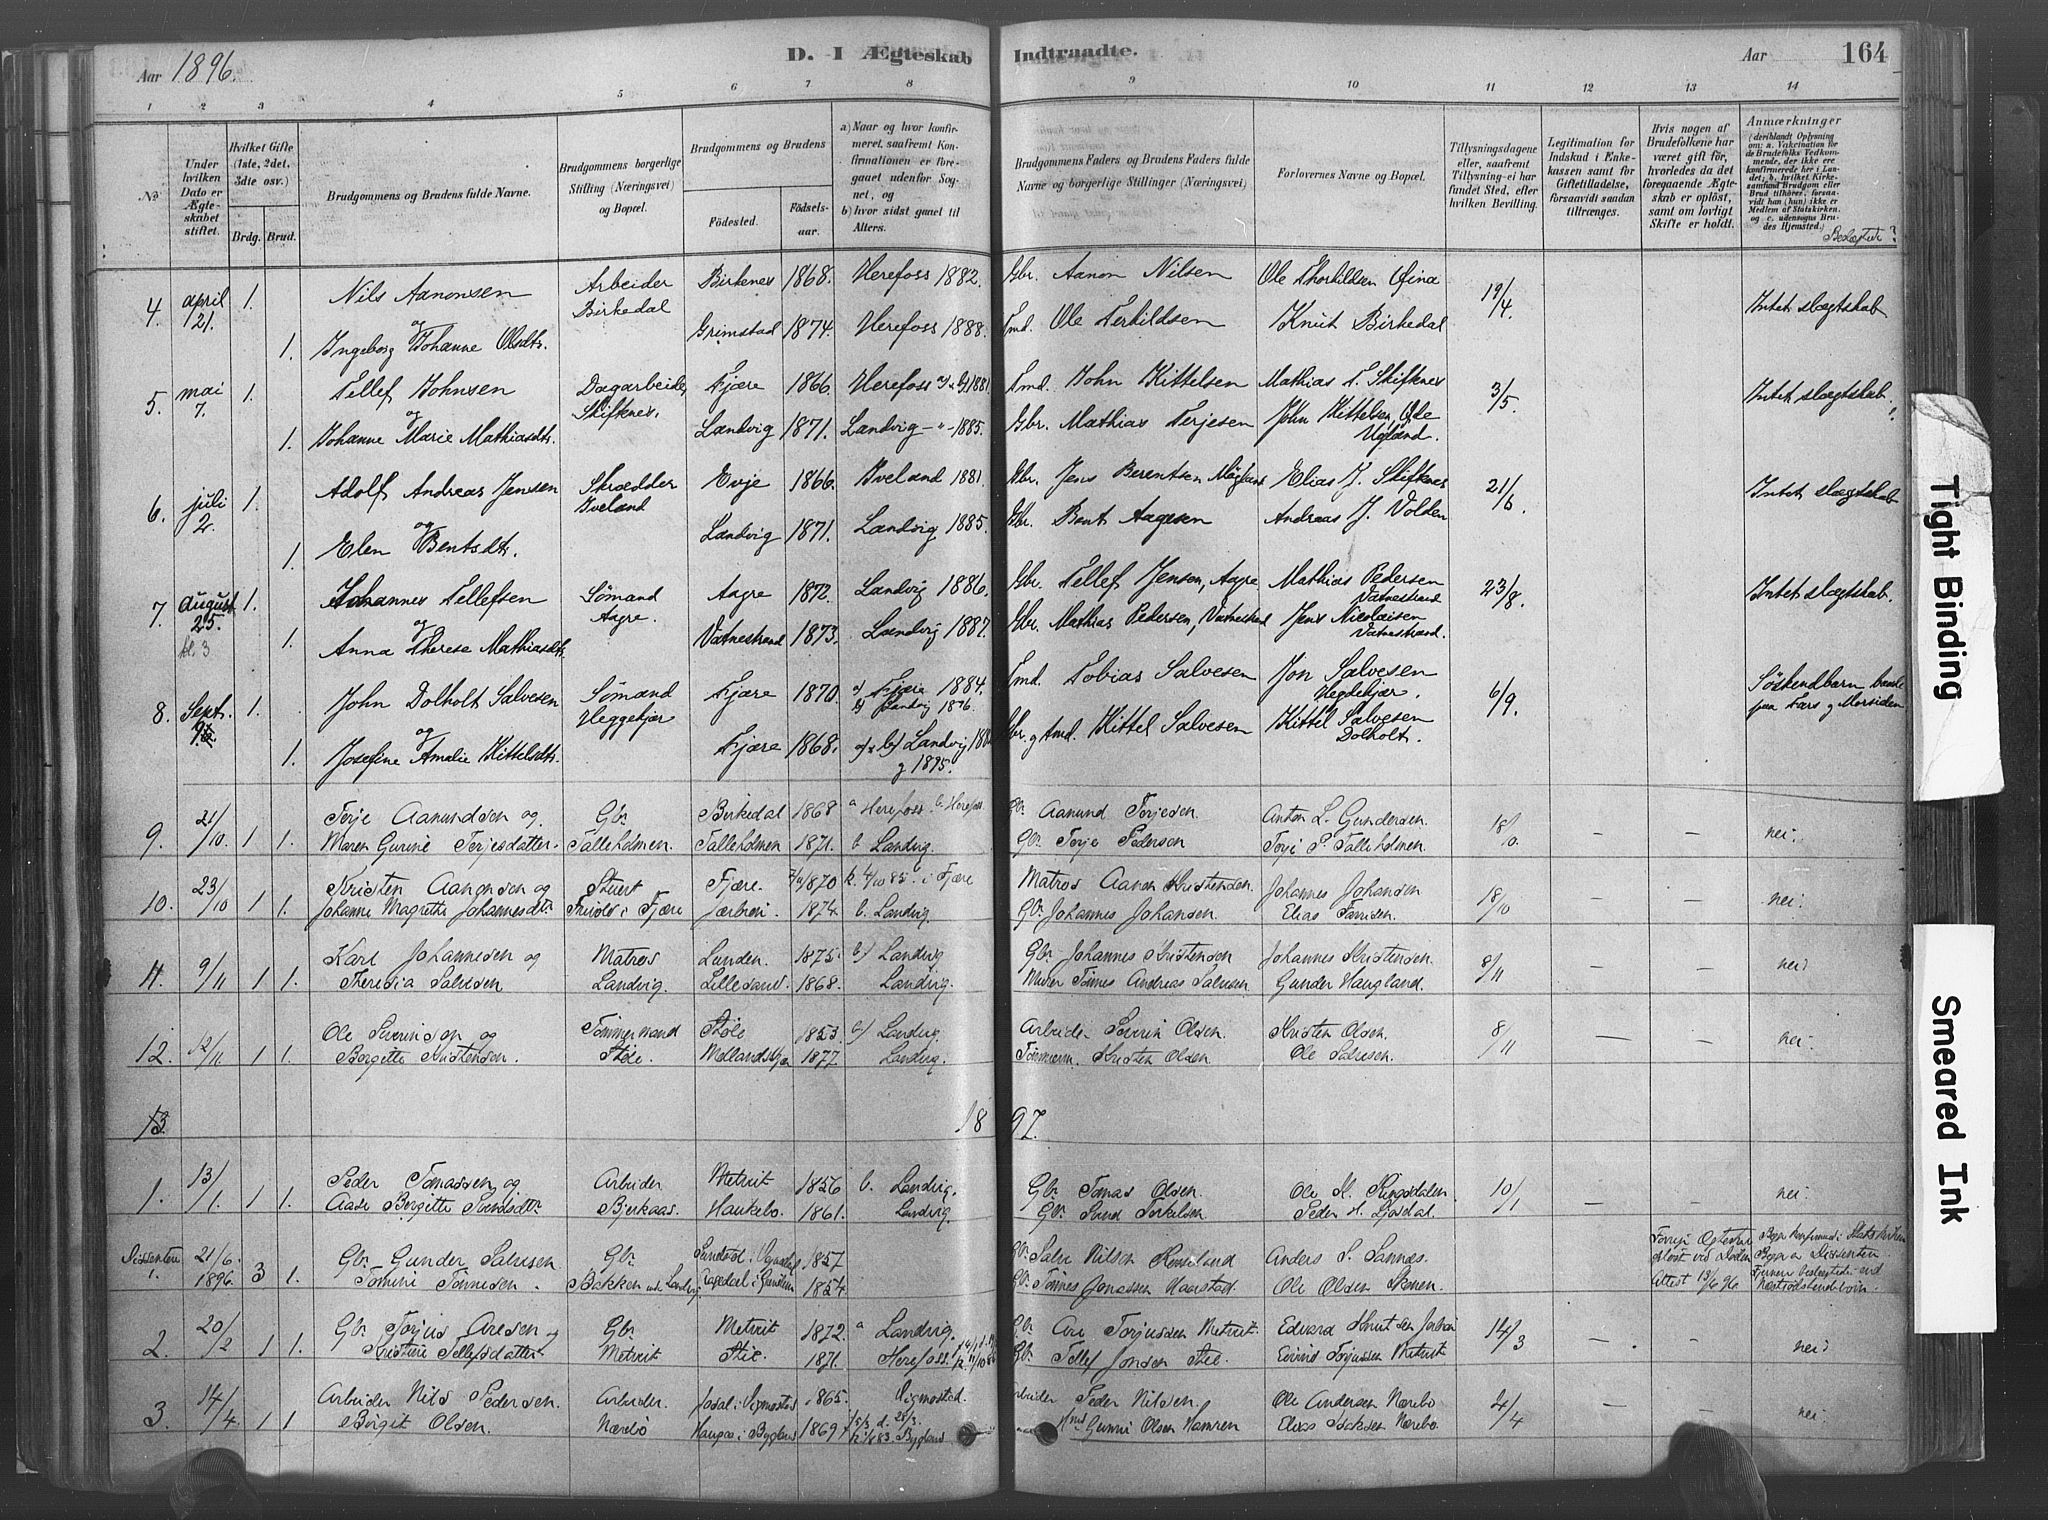 Aar 1896.
D. I Ægteskab Indtraadte.
Aar 164
1 2 3 4 5 6 7 8 9 10 11 12 13 14
No
Under hvilken Dato er Ægteskabet stiftet.
Hvilket Gifte (1ste, 2det, 3dte osv.)
Brdg. Brud.
Brudgommens og Brudens fulde Navne.
Brudgommens borgerlige Stilling (Næringsvei) og Bopæl.
Brudgommens og Brudens
Fødested. Fødselsaar.
a) Naar og hvor konfirmeret, saafremt Konfirmationen er foregaaet udenfor Sognet, og
b) hvor sidst gaaet til Alters.
Brudgommens Faders og Brudens Faders fulde Navne og borgerlige Stillinger (Næringsvei)
Forlovernes Navne og Bopæl.
Tillysningsdagene eller, saafremt Tillysning ei har fundet Sted, efter hvilken Bevilling.
Legitimation for Indskud i Enkekassen samt for Giftetilladelse, forsaavidt saadan tiltrænges.
Hvis nogen af Brudefolkene har været gift før, hvorledes da det foregaaende Ægteskab er opløst, samt om lovligt Skifte er holdt.
Anmærkninger
(deriblandt Oplysning om: a. Vakcination for de Brudefolks Vedkommende, der ikke ere konfirmerede her i Landet; b. hvilket Kirkesamfund Brudgom eller Brud tilhører, forsaavidt han (hun) ikke er Medlem af Statskirken, og c. udensogns Brudes Hjemsted.)
Beslægtede?
4. april 21. 1. Nils Aanonsen Arbeider Birkenes 1868. Herefoss 1882. Gbr. Aanon Nilsen Ole Thorkildsen Øina 19/4. Intet slægtskab
og Birkedal
1. Ingeborg Johanne Olsdtr. Grimstad 1874. Herefoss 1888. Tmd. Ole Terkildsen Knut Birkedal
5. mai 7. 1. Tellef Johnsen Dagarbeider Fjære 1866 Herefoss 1881 Tmd. John Kittelsen Mathias T. Skifknes 3/5. Intet slægtskab.
og Skifknes.
1. Johanne Marie Mathiasdtr. Landvig 1871. Landvig -"- 1885. Gbr. Mathias Terjesen John Kittelsen Øde Ugland.
6. juli 2. 1. Adolf Andreas Jensen Skrædder Evje 1866. Iveland 1881. Gbr. Jens Berentsen Elias J. Skifknes 21/6. Intet slægtskab
og Iveland
1. Elen Bentsdtr. Landvig 1871. Landvig 1885. Gbr. Bent Aagesen Andreas J. Volden
7. August 25. 1. Johannes Tellefsen Sømand Aagre 1872. Landvig 1886. Gbr. Tellef Jensen, Aagre Mathias Pedersen Vatnestrand 23/8. Intet slægtskab.
kl. 3 og Aagre.
1. Anna Therese Mathiasdtr. Vatnestrand 1873. Landvig 1887. Gbr. Mathias Pedersen, Vatnestrand Jens Nicolaisen Vatnestrand.
8. Sept. 1. John Dolholt Salvesen Sømand Fjære 1870. a) Fjære 1884. b) Landvig 1896. Tmd. Tobias Salvesen Jon Salvesen Hegdekjær. 6/9. Söskendbarn baade paa Fars og Morsiden
og Heggekjær
1. Josefine Amalie Kittelsdtr. Fjære 1868. b) Landvig og 1895. Gbr. og Tmd. Kittel Salvesen Kittil Salvesen Dolholt.
9. 21/10. 1 1. Terje Aanundsen og Gbr. Birkedal 1868 a Herefoss b. Herefoss Gbr. Aanund Terjesen Anton L. Gundersen. 18/10. — — nei.
Maren Gurine Terjesdatter. Talleholmen. Talleholmen 1871. b Landvig. Gbr. Terje Pedersen Terje P. Talleholmen
10. 23/10 1 1. Kristen Aanonsen og Stuert Fjære. 1870 k. 4/10 85. i Fjære Matros Aanon Kristensen. Johannes Johansen 18/10 — — nei.
Johanne Magrethe Johannesdtr. i Fjære 1874. b. Landvig. Gbr. Johannes Johansen.
11. 9/11 1 1. Karl Johannesen og Matros Lunden. 1875. b) Landvig Gbr. Johannes Kristensen Johannes Kristensen. 8/11 — — nei
Theresia Salvesen Landvig. Lillesand. 1868. Landvig. Murer Tönnes Andreas Salvesen Gunder Haugland.
12. 12/11 1 1. Ole Severinsen og Tömmermand Støle 1853. b) Landvig. Arbeider Severin Olsen. Kristen Olsen. 8/11 — — nei.
Bergitte Kristensen. Støle. 1877. Landvig. Kristen Olsen. Ole Salvesen.
13 1897.
1. 13/1. 1 1. Peder Tomassen og Arbeider Metveit 1856 b. Landvig. Gbr. Tomas Olsen. Ole M. Ringsdalen. 10/1 — — nei.
Aase Bergitte Svendsdtr. Bjerkaas. Haukebo. 1861. Landvig. Gbr. Svend Terkelsen. Peder H.
Dissentere 1. 21/6 1896. 3 1. Gbr. Gunder Salvesen Gbr. 1857 Gbr. Salve Nilsen Anders S. Sannæs. Attest 13/6 96
Tomine Tönnesen. Bakken Landvig 1854. Gbr. Tönnes Jonassen Ole Olsen Skaren.
2. 20/2 1 1. Gbr. Torjus Aresen og Gbr. Metveit 1872. a Landvig. Gbr. Are Torjussen Metveit. Edvard Knutsen 14/3 — — nei
Kristine Tellefsdatter Metveit Stie. 1871. Herefoss. Gbr. Tellef Jonsen Stie Eivind Torjussen Metveit
3. 14/4 1 1 Arbeider Nils Pedersen. Arbeider. i Vigmostad 1865. Vigmostad. Arbeider Peder Nilsen. Ole Andersen Nærebø 4/4 — — nei.
Birgit Olsen. Nærebö i Bygland 1869 Bygland Gunne Olsen Elias Nærebo
Tight Binding
Smeared Ink